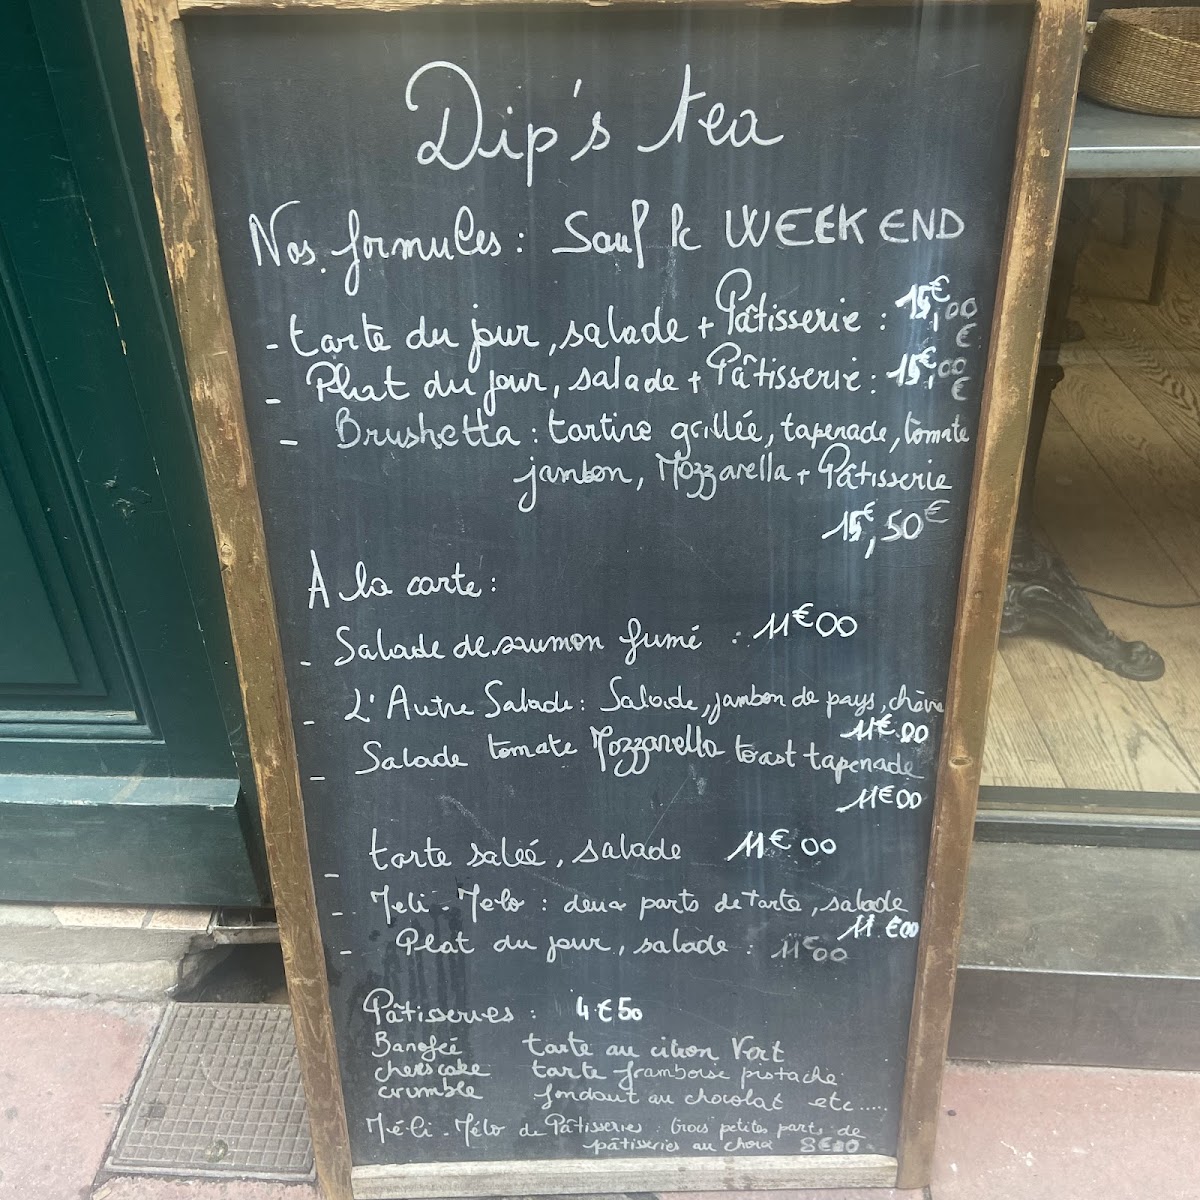 Dip's tea
Nos formules : Sauf le WEEK END
- tarte du jour, salade + Pâtisserie : 15€,00 €
- Plat du jour, salade + Pâtisserie : 15€,00 €
- Brushetta : tartine grillée, tapenade, tomate
jambon, Mozzarella + Pâtisserie
15€,50€
A la carte :
- Salade de saumon fumé : 11€00
- L'Autre Salade : Salade, jambon de pays, chèvre
11€00
- Salade tomate Mozzarella toast tapenade
11€00
- tarte salée, salade 11€00
- Meli-Melo : deux parts de tarte, salade
11€00
- Plat du jour, salade : 11€00
Pâtisseries : 4€50
Banofeé tarte au citron Vert
cheescake tarte framboise pistache
crumble fondant au chocolat etc.....
Méli-Mélo de Pâtisseries : trois petites parts de
pâtisseries au choix 8€00